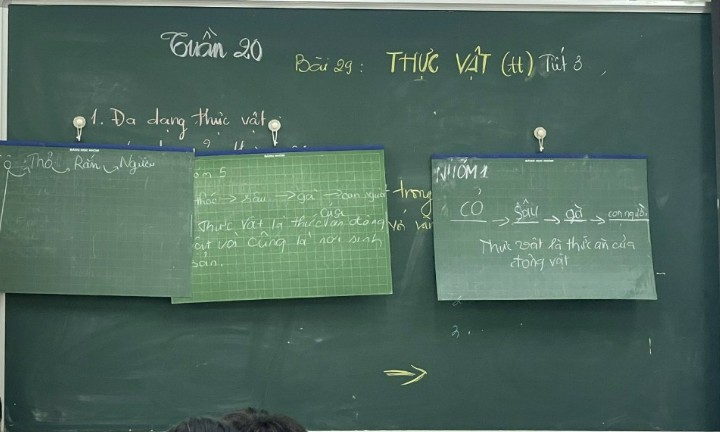 Tuần 20
Bài 29: THỰC VẬT (tt) Tiết 3
1. Đa dạng thực vật
Thỏ Rắn Người
5
thóc → sâu → gà → con người
Thực vật là thức ăn của động
vật và cũng là nơi sinh
sản.
trong
và
NHÓM 1
CỎ → Sâu → gà → con người.
Thực vật là thức ăn của
động vật
→